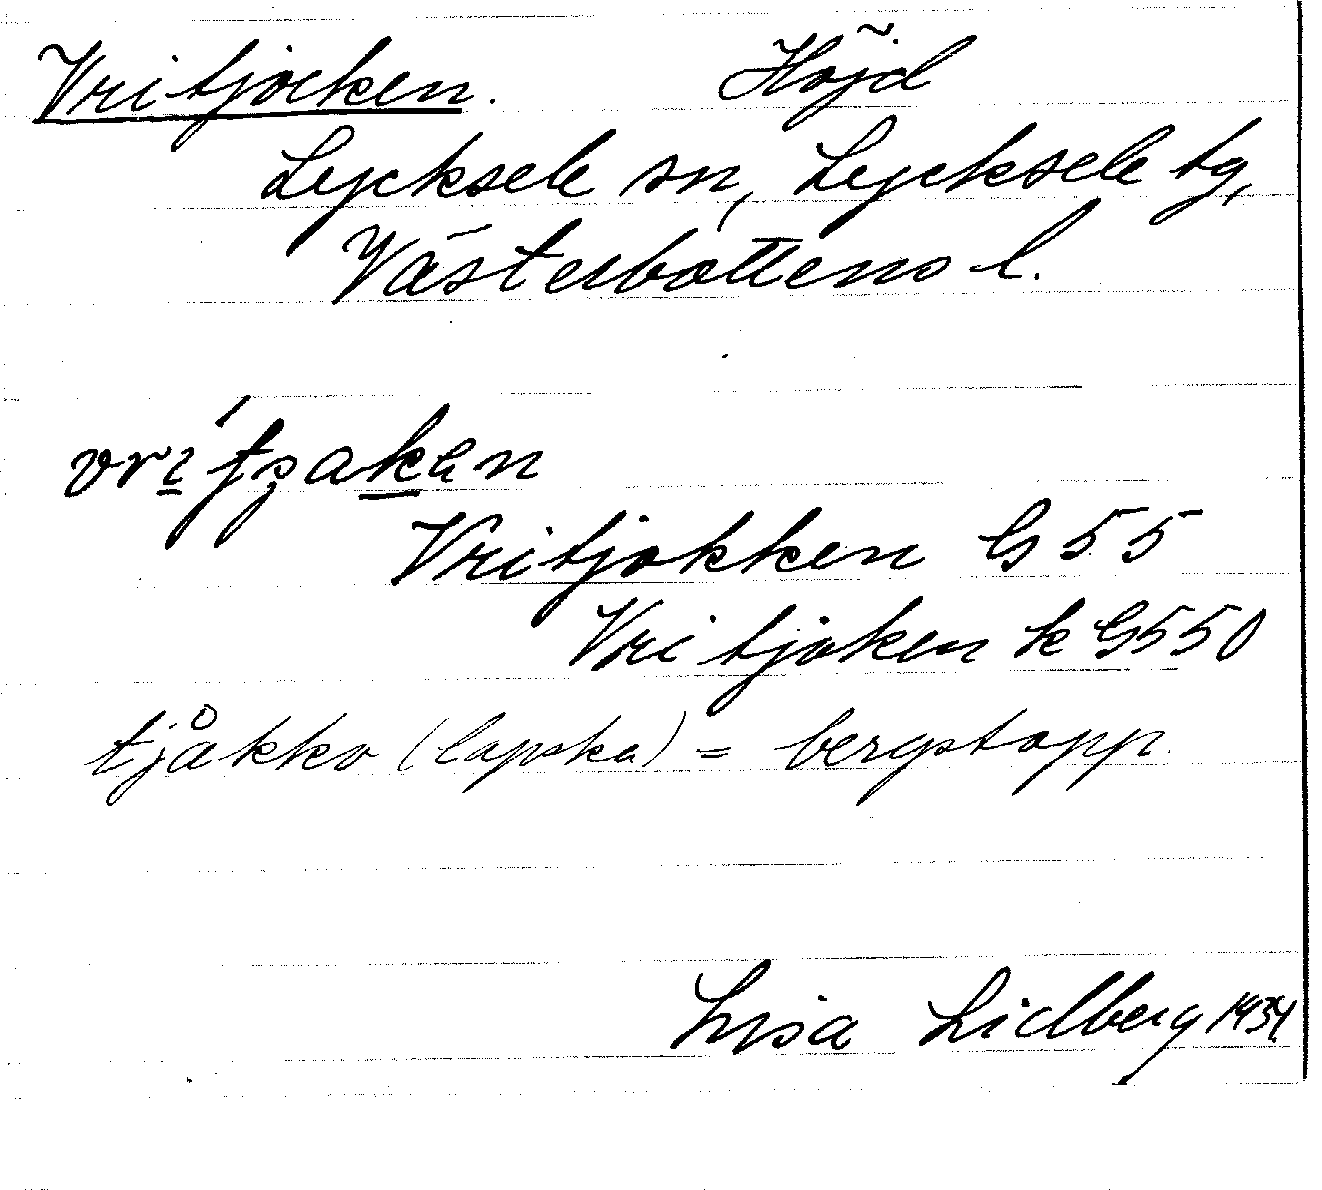 Vritjocken. Höjd
Lycksele sn, Lycksele tg,
Västerbottens l.
vritʒakan
Vritjokken G 55
Vritjoken k G 550
tjåkko (lapska) = bergstopp.
Lisa Lidberg 1934